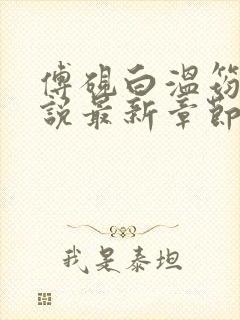 傅砚白温笏
說最新章節
我是泰坦